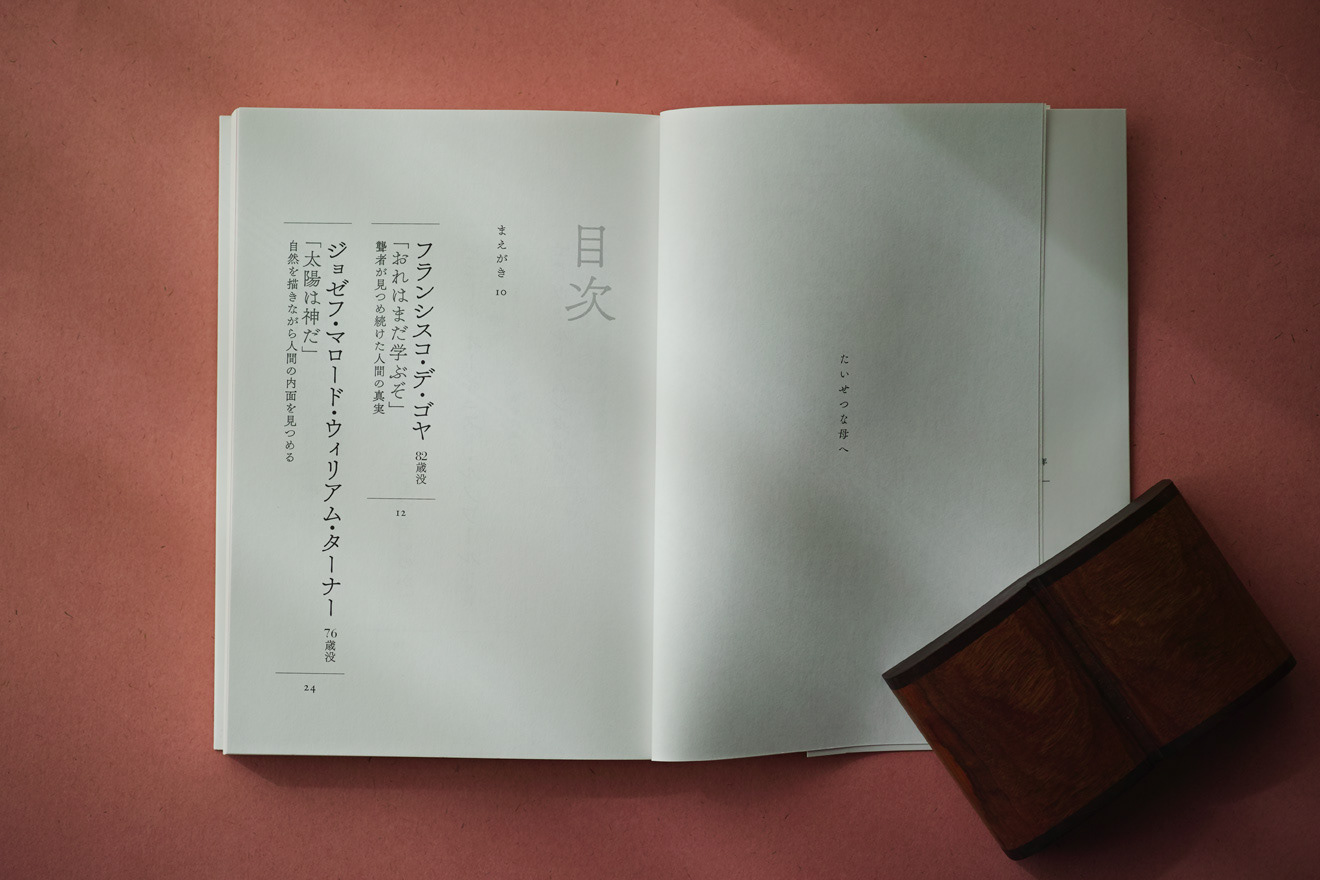 たいせつな母へ
目次
まえがき 10
フランシスコ・デ・ゴヤ 82歳没
「おれはまだ学ぶぞ」
聾者が見つめ続けた人間の真実
12
ジョゼフ・マロード・ウィリアム・ターナー 76歳没
「太陽は神だ」
自然を描きながら人間の内面を見つめる
24